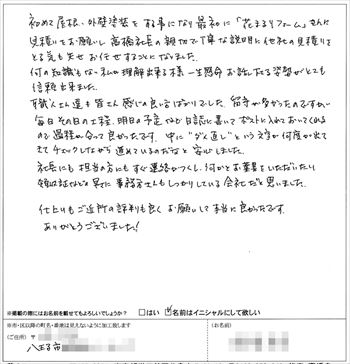 初めて屋根、外壁塗装をする事になり最初に「花まるリフォーム」さんに
見積りをお願いし高橋社長の親切で丁寧な説明に他社の見積りを
とる気も失せお任せすることになりました。
何の知識もない私が理解出来る様一生懸命お話し下さる姿勢がとても
信頼出来ました。
職人さん達も皆さん感じの良い方ばかりでした。留守が多かったのですが
毎日その日の工程、明日の予定など日誌に書いてポストに入れおいてくれる
ので過程が分って良かったです。中に"ダメ直し"という文字が何度か出てきて
チェックしながら進めているのだなと安心しました。
社長にも担当の方にもすぐ連絡がつくし、何かとお葉書をいただいたり
領収証なども早くに事務員さんもしっかりしている会社だと思いました。
仕上りもご近所の評判も良くお願いして本当に良かったです。
ありがとうございました！
※掲載の際にはお名前を載せてもよろしいでしょうか？ □はい ☑名前はイニシャルにして欲しい
※市・区以降の町名・番地は見えないように加工致します
（ご住所）〒
（お名前）
八王子市